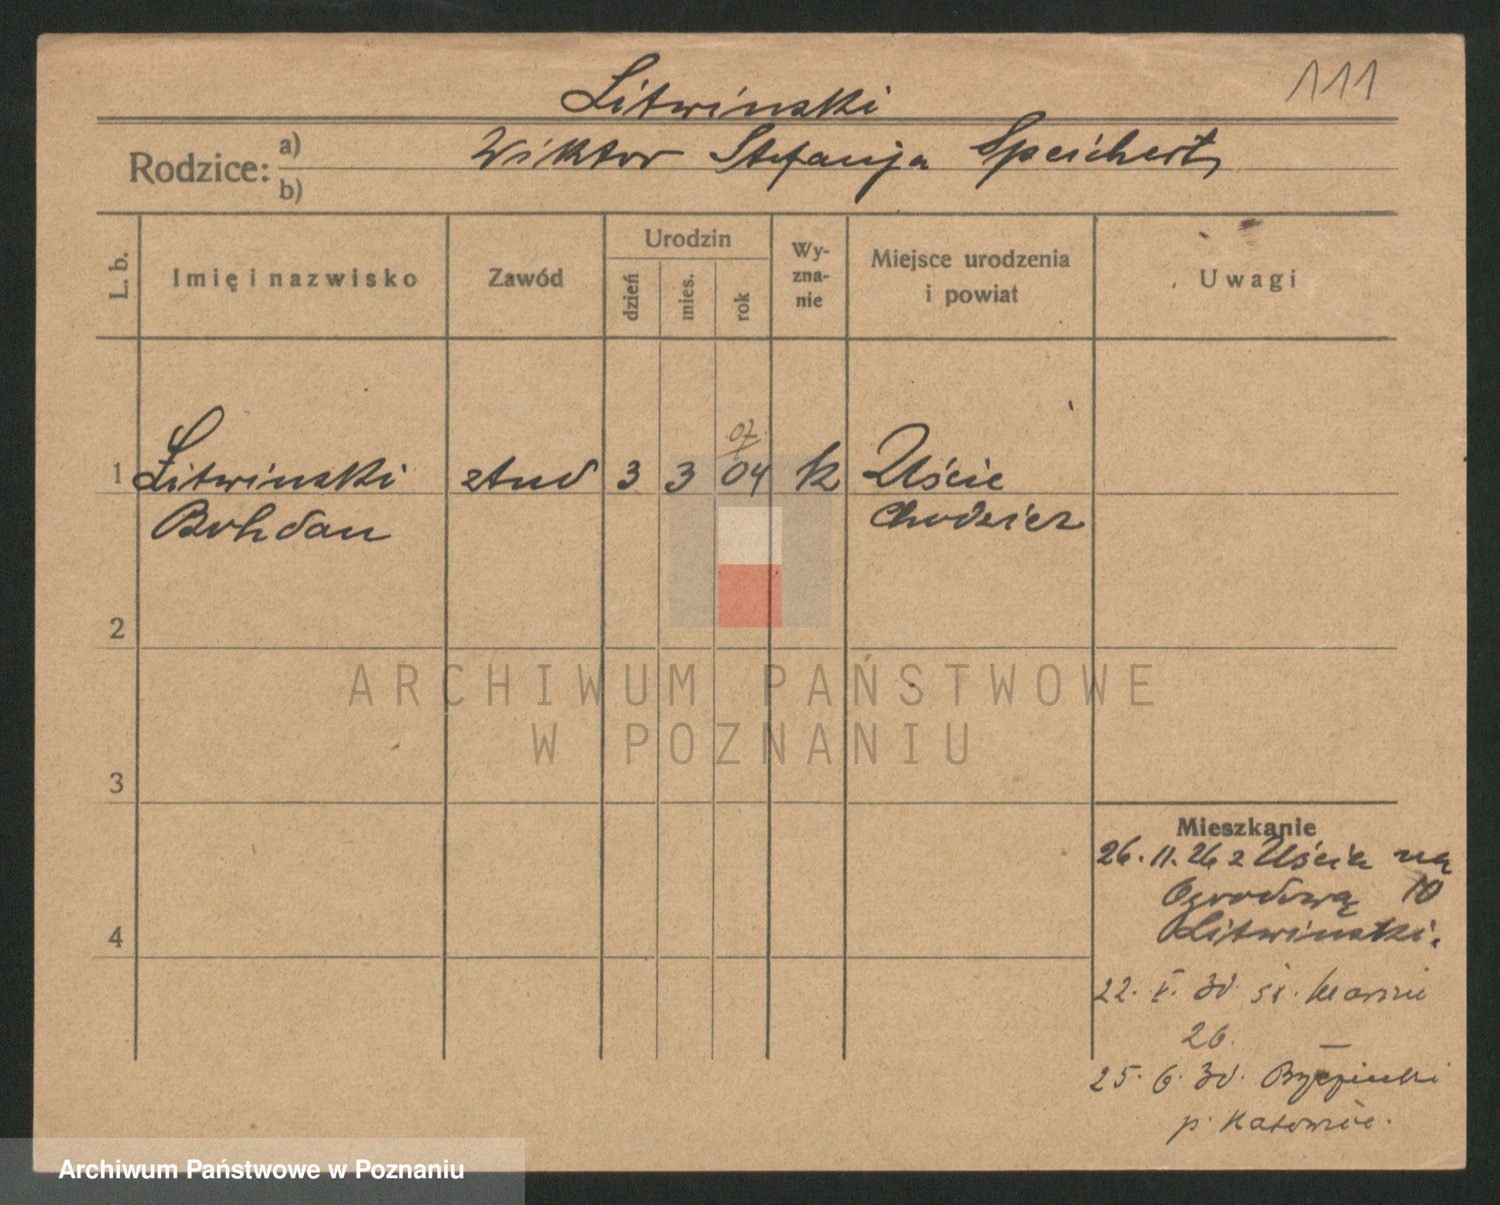 111
Litwinski
Rodzice: a) Wiktor Stefanja Speichert
b)
L. b. Imię i nazwisko Zawód Urodzin dzień mies. rok Wyznanie Miejsce urodzenia i powiat Uwagi
07
1 Litwinski stud 3 3 04 k Uście
Bohdan Chodzież
2
ARCHIWUM PAŃSTWOWE
W POZNANIU
3
Mieszkanie
26.11.26 z Uścia na
Ogrodową 10
4 Litwinski.
22. V. 30 św. Marcin
26.
25. 6. 30.
p. Katowice.
Archiwum Państwowe w Poznaniu